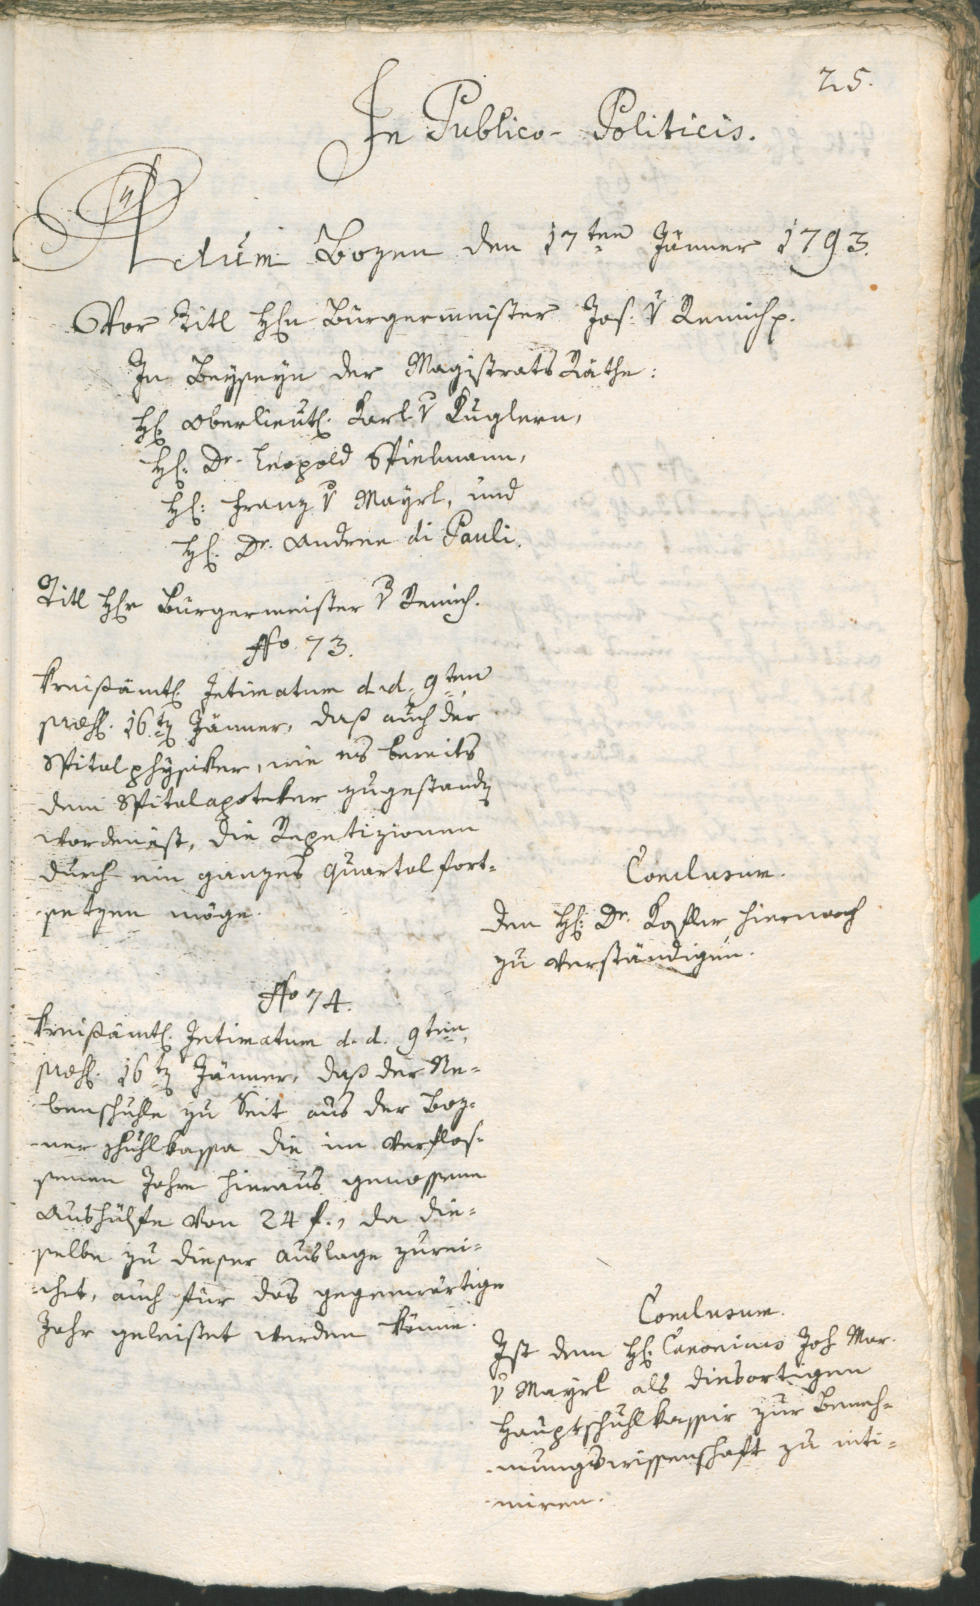 25.
In Publico-Politicis.
Actum Bozen den 17ten Jänner 1793.
Vor Titl Hhn Bürgermeister Jos: v Remich p.
In Beyseyn der Magistrats Räthe:
H: Oberlieut: Karl v Kuglern,
H: Dr. Leopold Spielmann,
H: Franz v Mayrl, und
H: Dr. Andree di Pauli.
Titl Hhr Bürgermeister v Remich.
No. 73.
Kreißämtl: Intimatum d. d. 9ten
præs: 16tn Jänner, daß auch der
Spitalphysiker, wie es bereits
dem Spitalapoteker zugestandn
worden ist, die Repetizionen
durch ein ganzes Quartal fort-
setzen möge.
Conclusum.
Dem H: Dr. Kofler hiernach
zu verständigen.
No 74.
Kreißämtl: Intimatum d. d. 9ten,
præs: 16tn Jänner, daß der Ne-
benschuhle zu Seit aus der Boz-
ner Schuhlkassa die im verflos-
senen Jahre hieraus genossene
Aushülfe von 24 f., da die-
selbe zu dieser Auslage zurei-
chet, auch für das gegenwärtige
Jahr geleistet werden könne.
Conclusum.
Ist dem H: Canonicus Joh Mar.
v Mayrl als diesortigen
Hauptschuhlkassir zur Beneh-
mungswissenschaft zu inti-
miren.